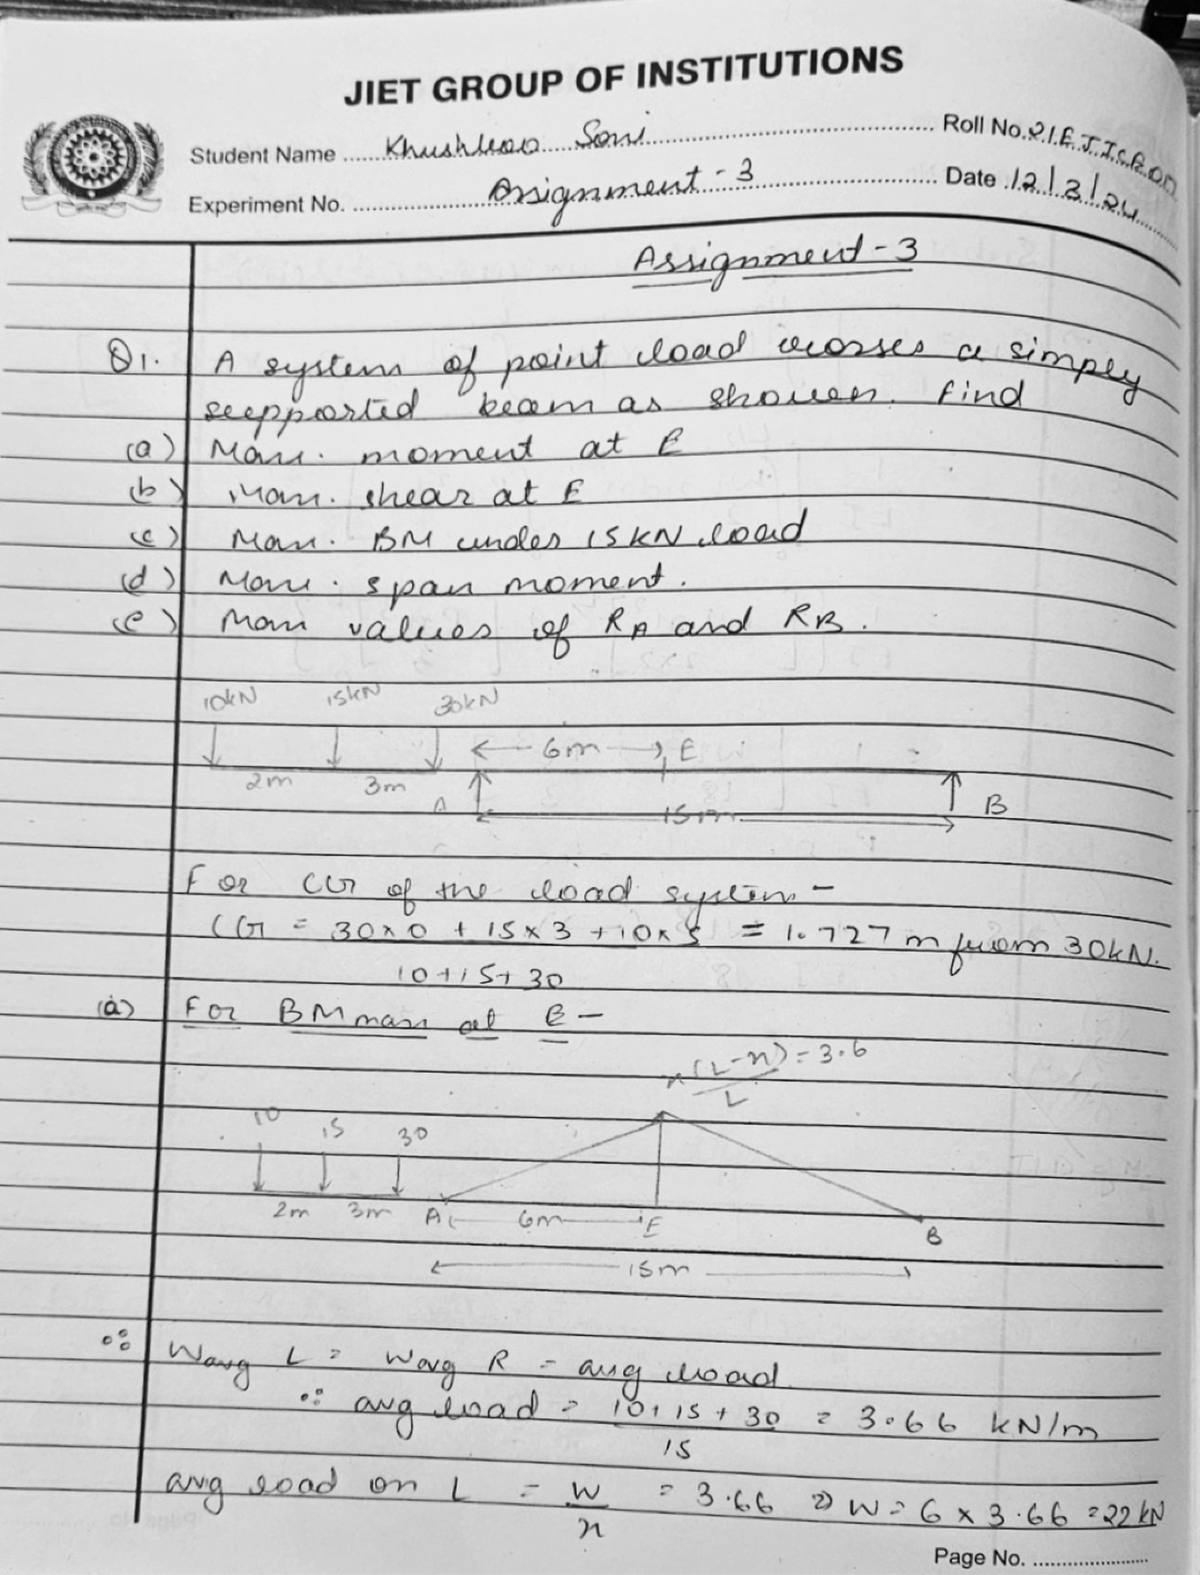 JIET GROUP OF INSTITUTIONS
Student Name Soni Roll No.
Experiment No. Assignment - 3 Date 12/3/24
Assignment - 3
Q1. A system of point load crosses a simply
supported beam as shown. Find
(a) Max. moment at E
(b) Max. shear at E
(c) Max. BM under 15KN load
(d) Max. span moment.
(e) Max values of RA and RB.
10kN 15kN 30kN
6m E
2m 3m A B
15m
For CG of the load system -
CG = 30x0 + 15x3 + 10x5 = 1.727 m from 30kN.
10+15+30
(a) For BM max at E -
x(L-x) = 3.6
L
10 15 30
2m 3m A 6m E B
15m
∴ Wavg L = Wavg R = avg load
∴ avg load = 10+15+30 = 3.66 kN/m
15
avg load on L = W = 3.66 ⇒ W = 6 x 3.66 = 22 kN
x
Page No.